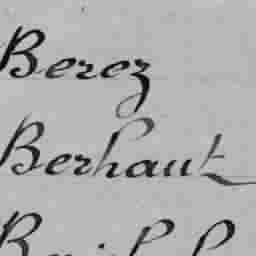 Berez
Berhaut